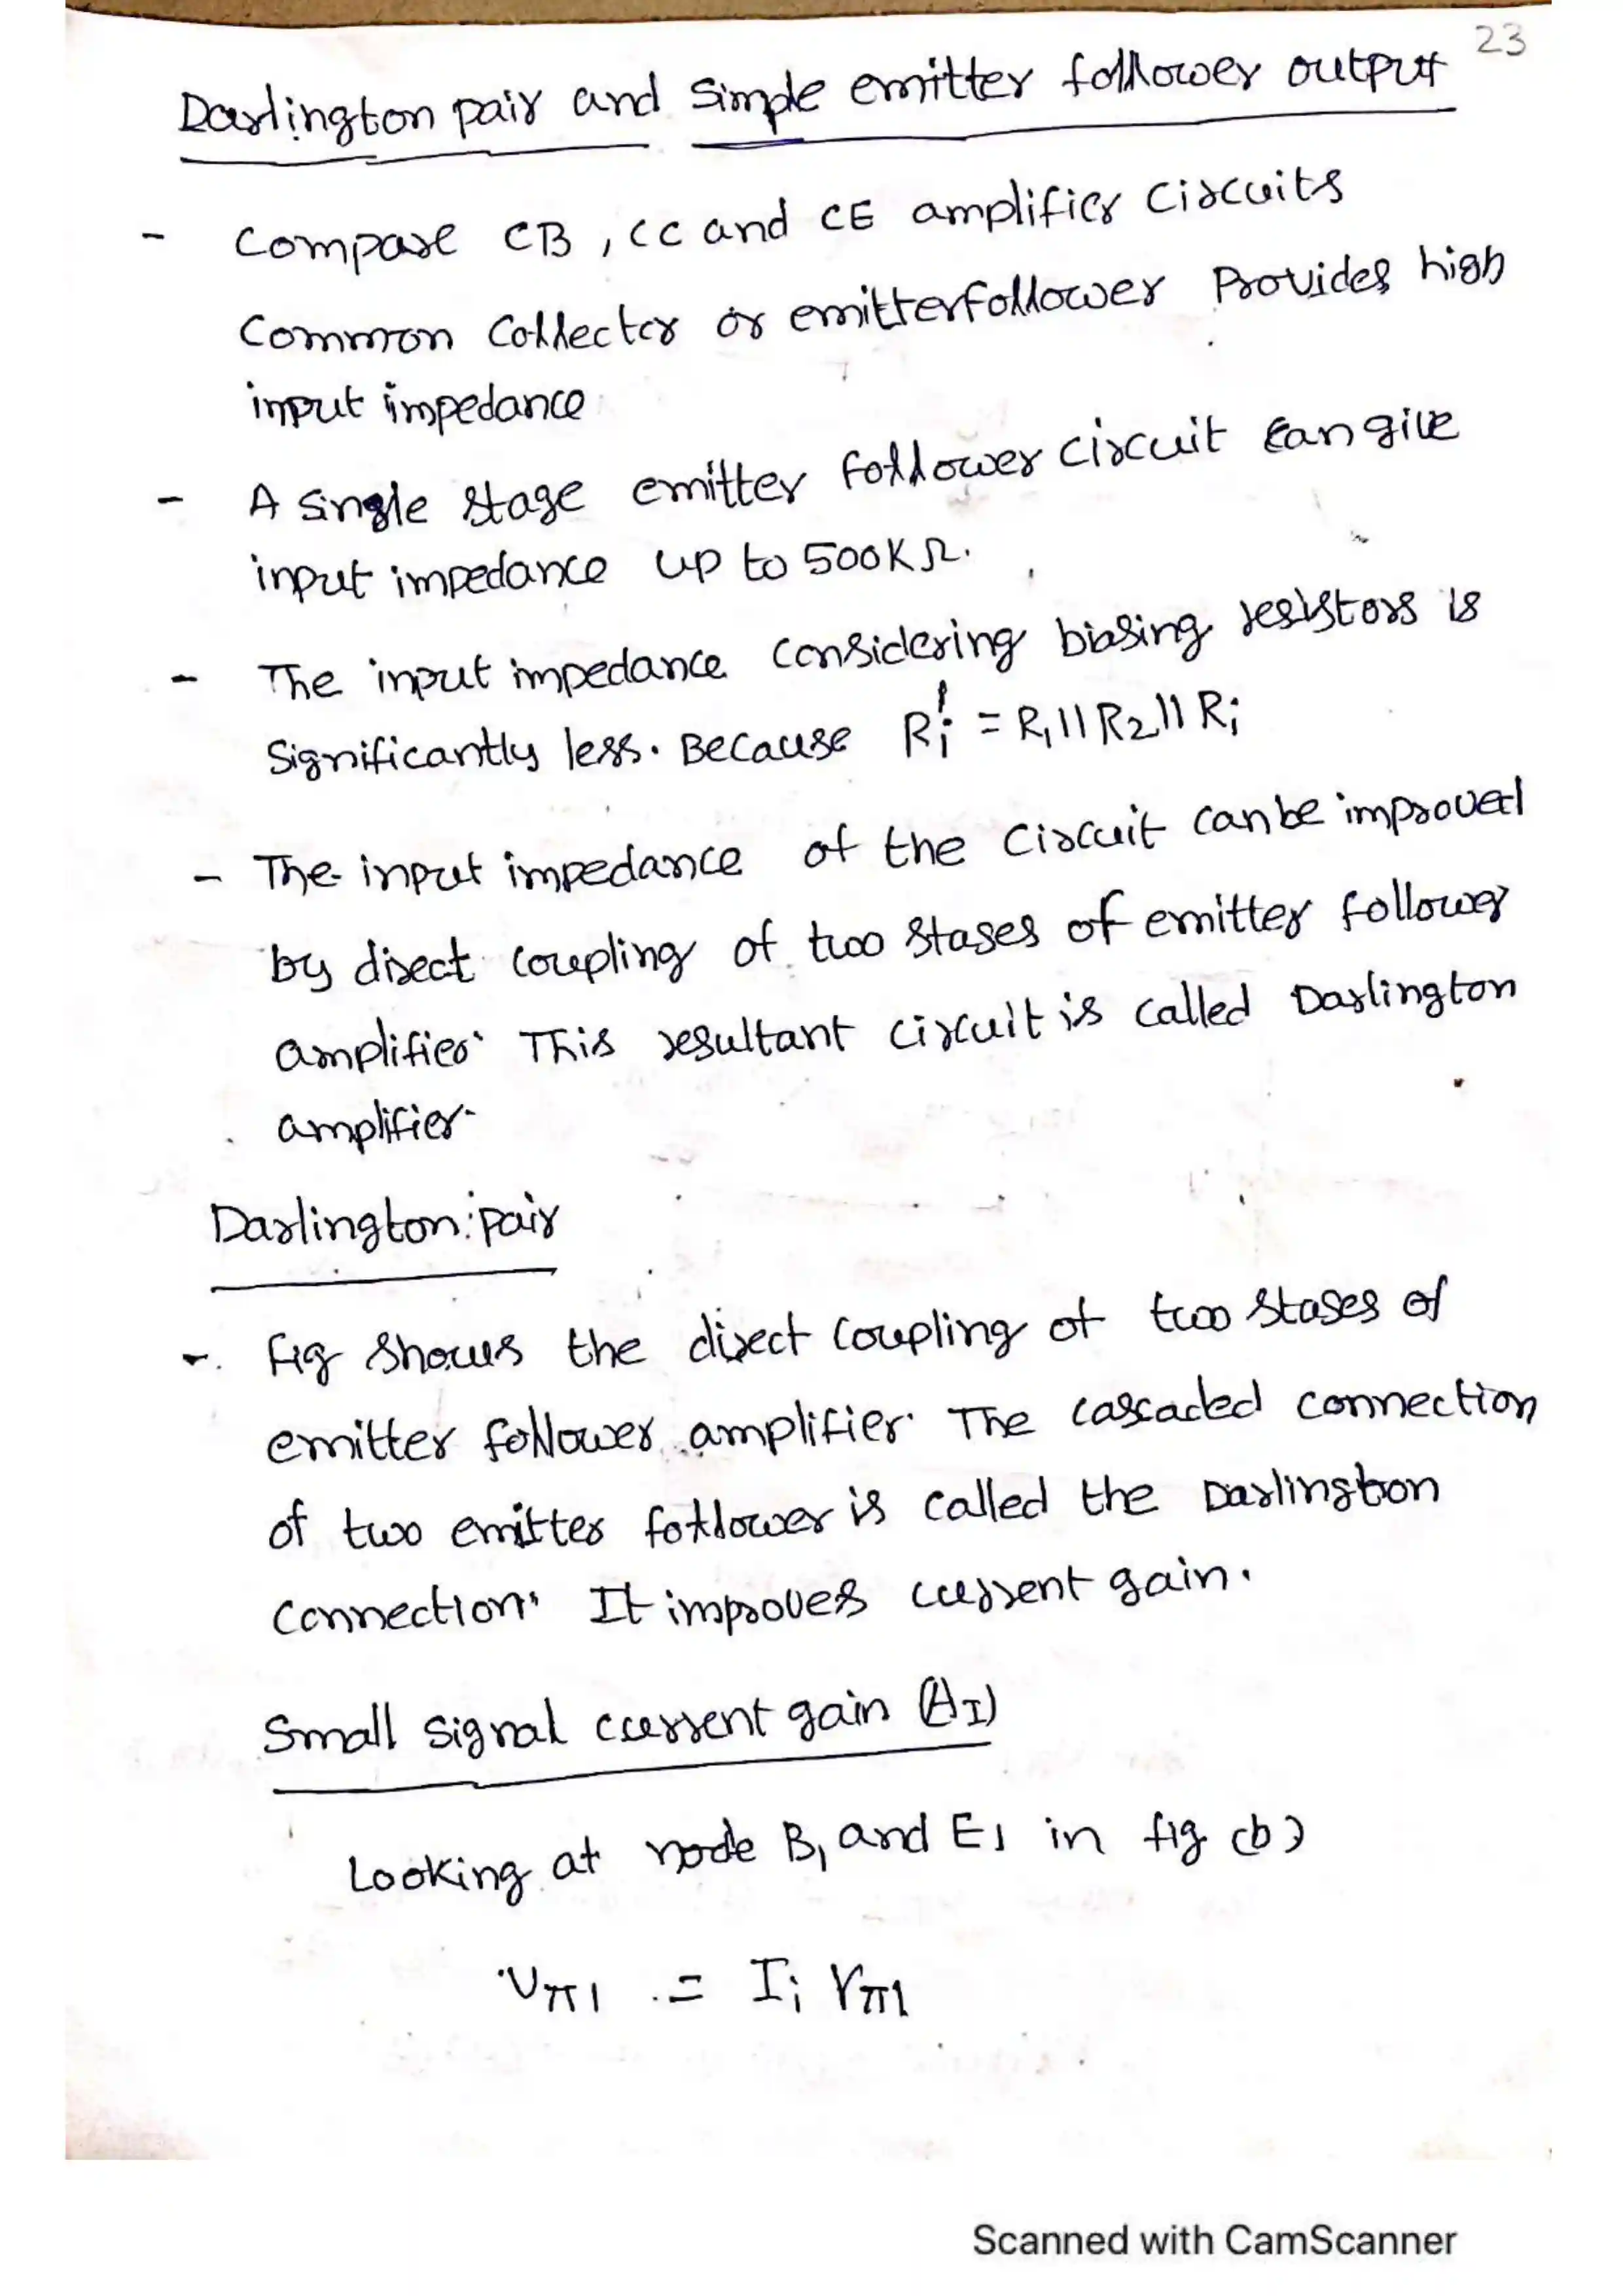 23
Darlington pair and Simple emitter follower output
- Compare CB, CC and CE amplifier Circuits
Common Collector or emitter follower Provides high
input impedance
- A Single Stage emitter follower circuit can give
input impedance up to 500KΩ.
- The input impedance Considering biasing resistors is
Significantly less. Because Ri' = R1 || R2 || Ri
- The input impedance of the Circuit can be improved
by direct coupling of two Stages of emitter follower
amplifier. This resultant circuit is called Darlington
amplifier.
Darlington pair
- Fig Shows the direct Coupling of two Stages of
emitter follower amplifier. The cascaded connection
of two emitter follower is called the Darlington
Connection. It improves current gain.
Small Signal current gain (AI)
Looking at node B1 and E1 in fig (b)
Vπ1 = Ii rπ1
Scanned with CamScanner